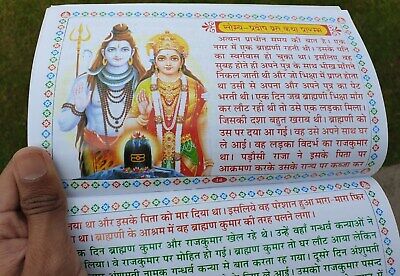 सौम्य-प्रदोष व्रत कथा प्रारम्भ
अत्यन्त प्राचीन समय की बात है। एक
नगर में एक ब्राह्मणी रहती थी। उसके पति
का स्वर्गवास हो चुका था। इसलिए वह
सुबह होते ही अपने पुत्र के साथ भीख माँगने
निकल जाती थी और जो भिक्षा में प्राप्त होता
था उसी से अपना और अपने पुत्र का पेट
भरती थी। एक दिन जब ब्राह्मणी भिक्षा माँग
कर लौट रही थी तो उसे एक लड़का मिला।
जिसकी दशा बहुत खराब थी। ब्राह्मणी को
उस पर दया आ गई। वह उसे अपने साथ घर
ले आई। वह लड़का विदर्भ का राजकुमार
था। पड़ोसी राजा ने इसके पिता पर
आक्रमण करके उसके राज्य पर कब्जा कर
गया था और इसके पिता को मार दिया था। इसलिये वह परेशान हुआ मारा-मारा फिर
था। ब्राह्मणी के आश्रम में वह ब्राह्मण कुमार की तरह पलने लगा।
एक दिन ब्राह्मण कुमार और राजकुमार खेल रहे थे। उन्हें वहाँ गन्धर्व कन्याओं ने
राजकुमार पर मोहित हो गई। ब्राह्मण कुमार तो घर लौट आया लेकिन
नामक गन्धर्व कन्या से बात करता रह गया। दूसरे दिन अंशुमती